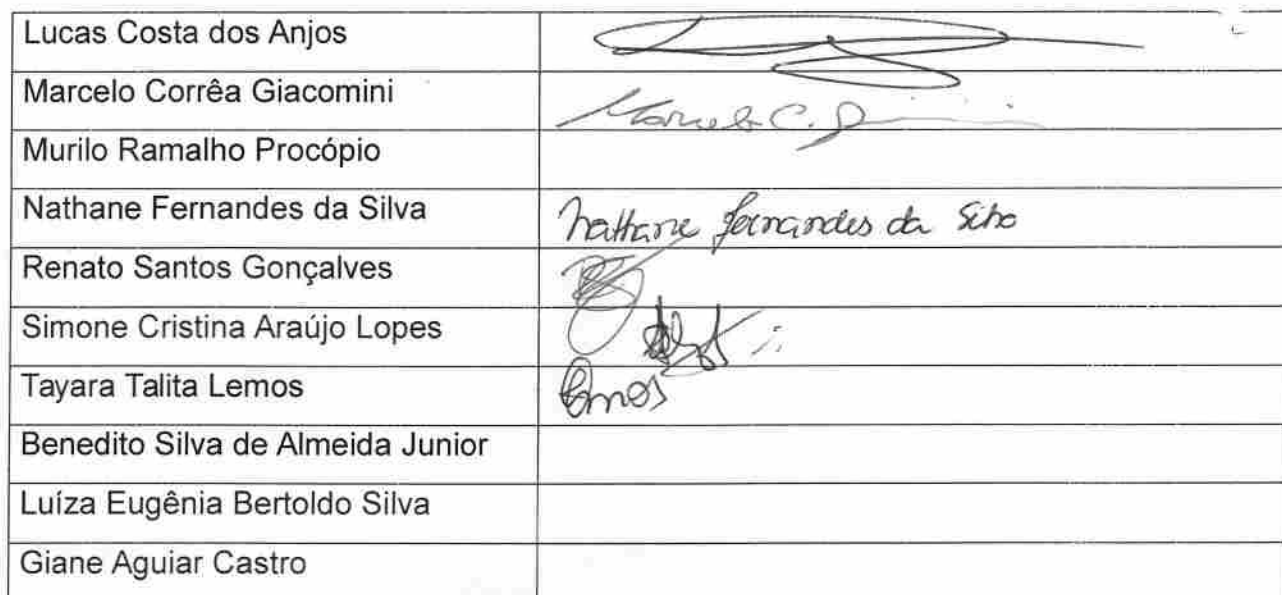 Lucas Costa dos Anjos
Marcelo Corrêa Giacomini
Marcelo C.
Murilo Ramalho Procópio
Nathane Fernandes da Silva
Nathane Fernandes da Silva
Renato Santos Gonçalves
Simone Cristina Araújo Lopes
Tayara Talita Lemos
Lemos
Benedito Silva de Almeida Junior
Luíza Eugênia Bertoldo Silva
Giane Aguiar Castro